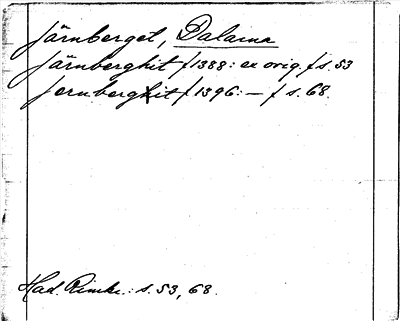 Järnberget, Dalarna
Järnberghit f 1388: ex orig. f s. 53
Jernberghit f 1396: — f s. 68.
Had. Rimkr.: s. 53, 68.